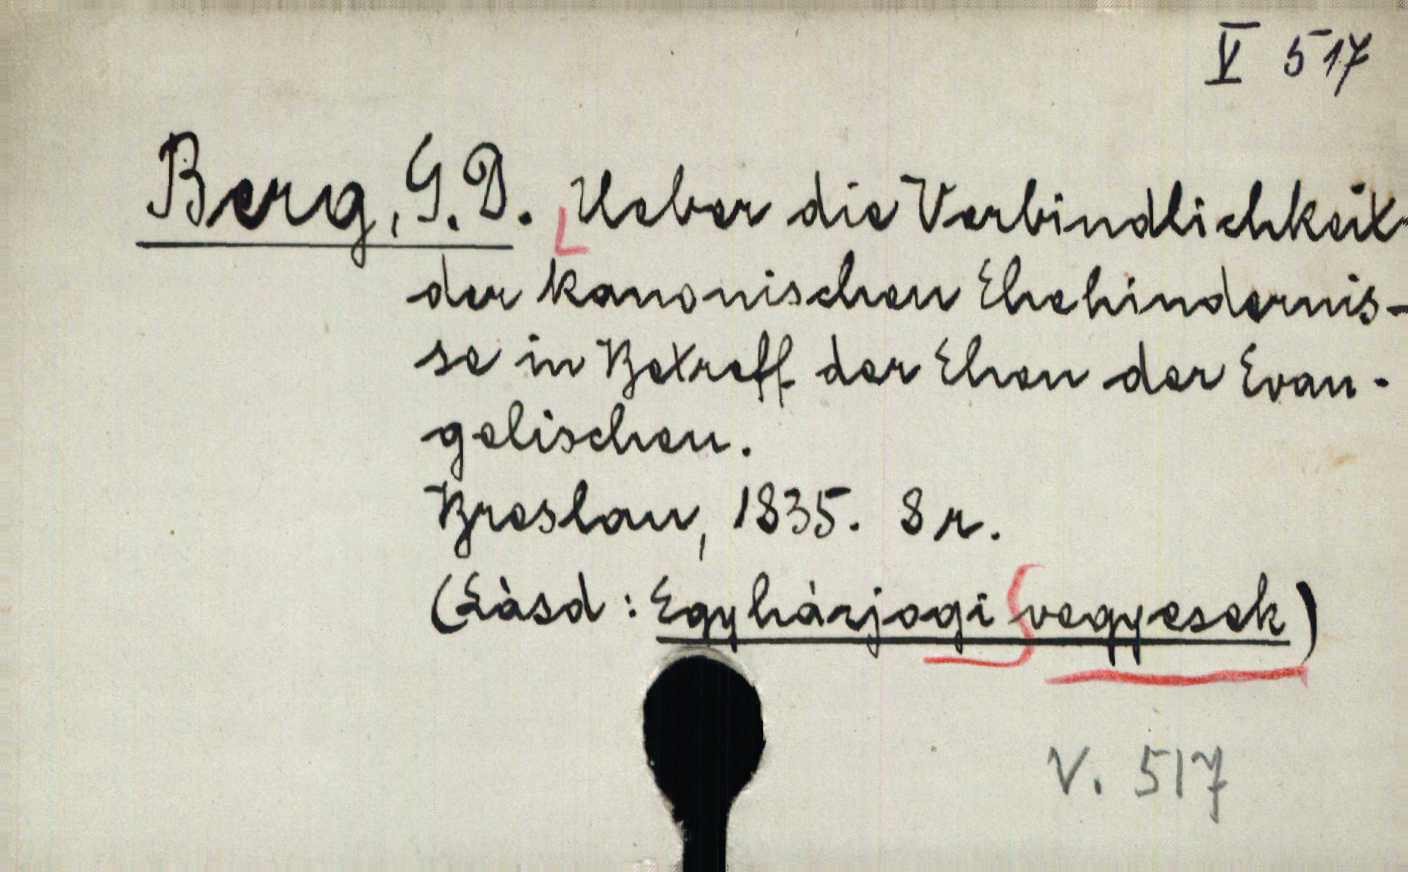 V 517
Berg, G. D. Ueber die Verbindlichkeit
der kanonischen Ehehindernis-
se in Betreff der Ehen der Evan-
gelischen.
Breslau, 1835. 8 r.
(Lásd: Egyházjogi vegyesek)
V. 517